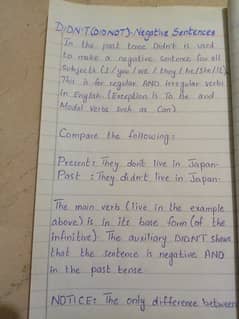 DIDN'T (DID NOT)- Negative Sentences
In the past tense Didn't is used
to make a negative sentence for all
Subjects (I / you / we / they / he/she/it)
This is for regular AND irregular verbs
in English. (Exception is To Be and
Modal Verbs such as Can)
Compare the following:
Present: They don't live in Japan.
Past : They didn't live in Japan.
The main verb (live in the example
above) is in its base form (of the
infinitive). The auxiliary DIDN'T shows
that the sentence is negative AND
in the past tense
NOTICE: The only difference between